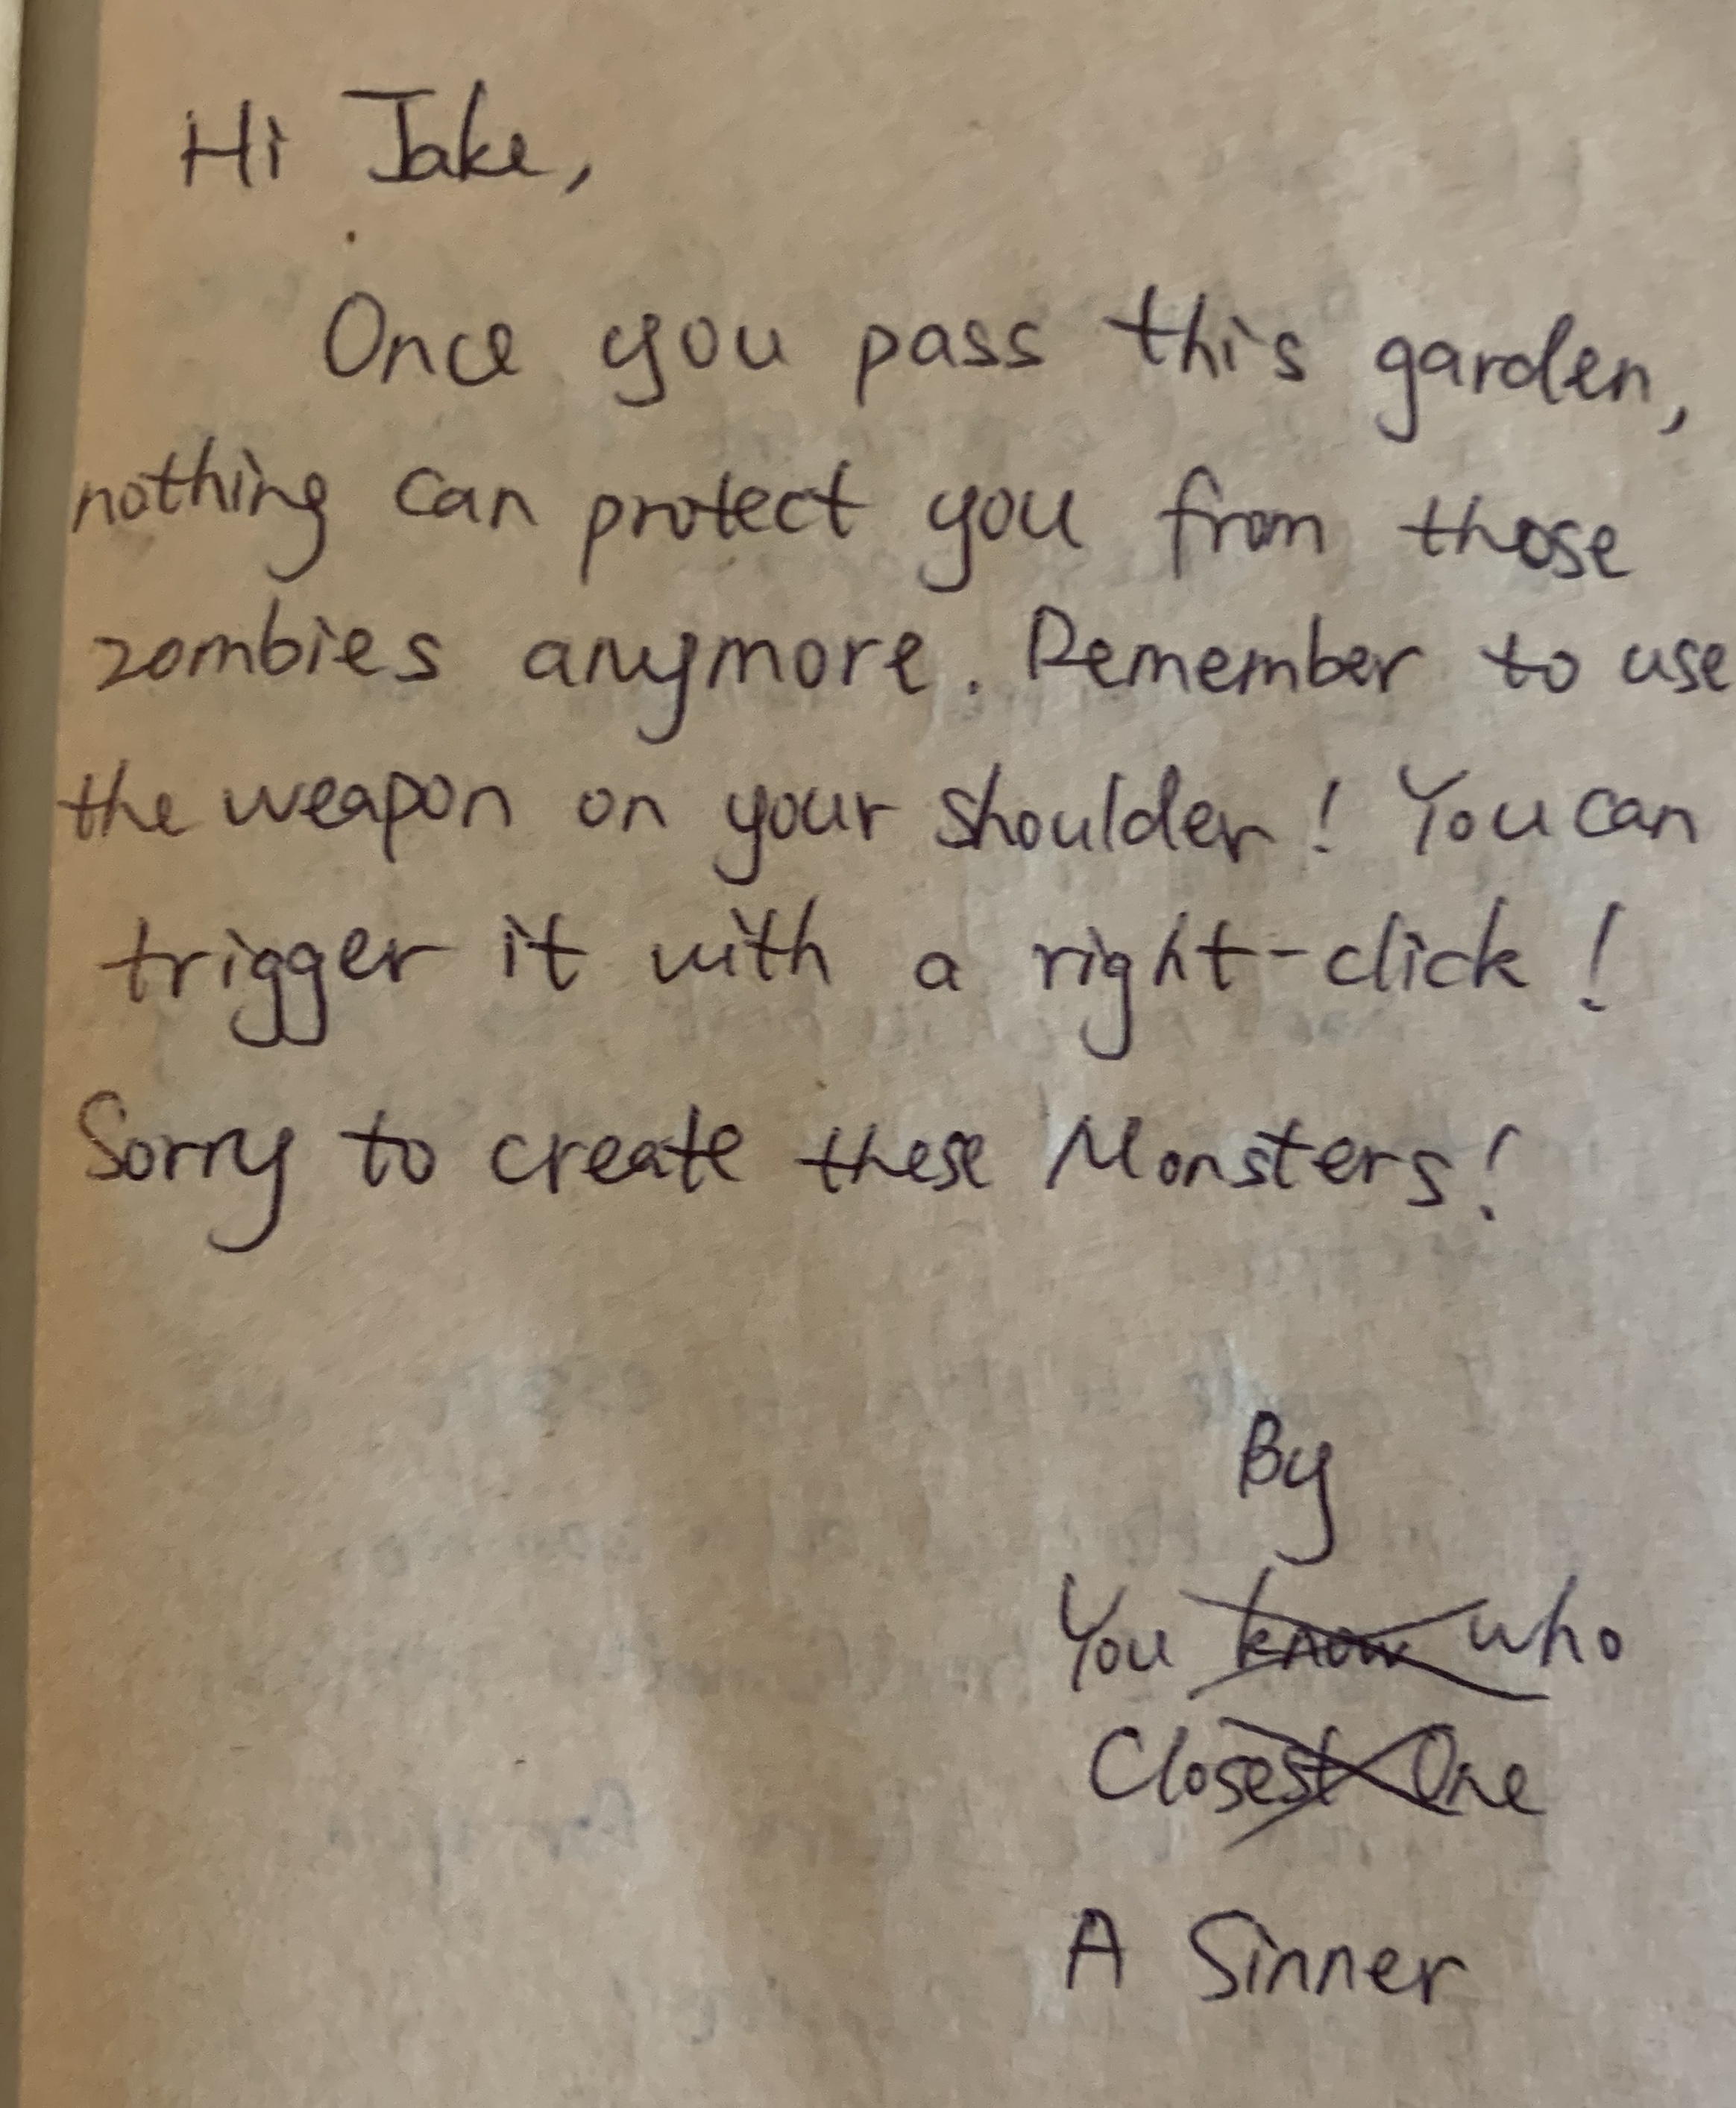 Hi Jake,
Once you pass this garden,
nothing can protect you from those
zombies anymore. Remember to use
the weapon on your shoulder! You can
trigger it with a right-click!
Sorry to create these Monsters!
By
You know who
Closest One
A Sinner